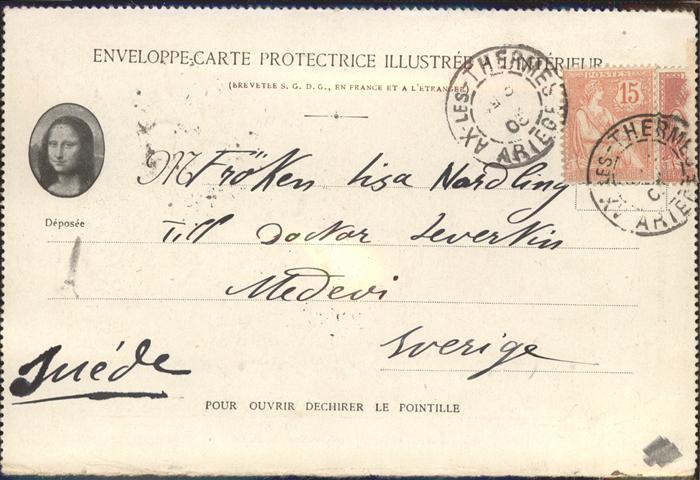 ENVELOPPE-CARTE PROTECTRICE ILLUSTRÉE L'INTÉRIEUR
(BREVETÉE S. G. D. G., EN FRANCE ET A L'ÉTRANGER)
AX-LES-THERMES ARIEGE
POSTES
15
AX-LES-THERMES ARIEGE
Déposée
M Fröken Lisa Nordling
Till Doctor Leverkin
Medevi
Sverige
Suéde
POUR OUVRIR DECHIRER LE POINTILLE